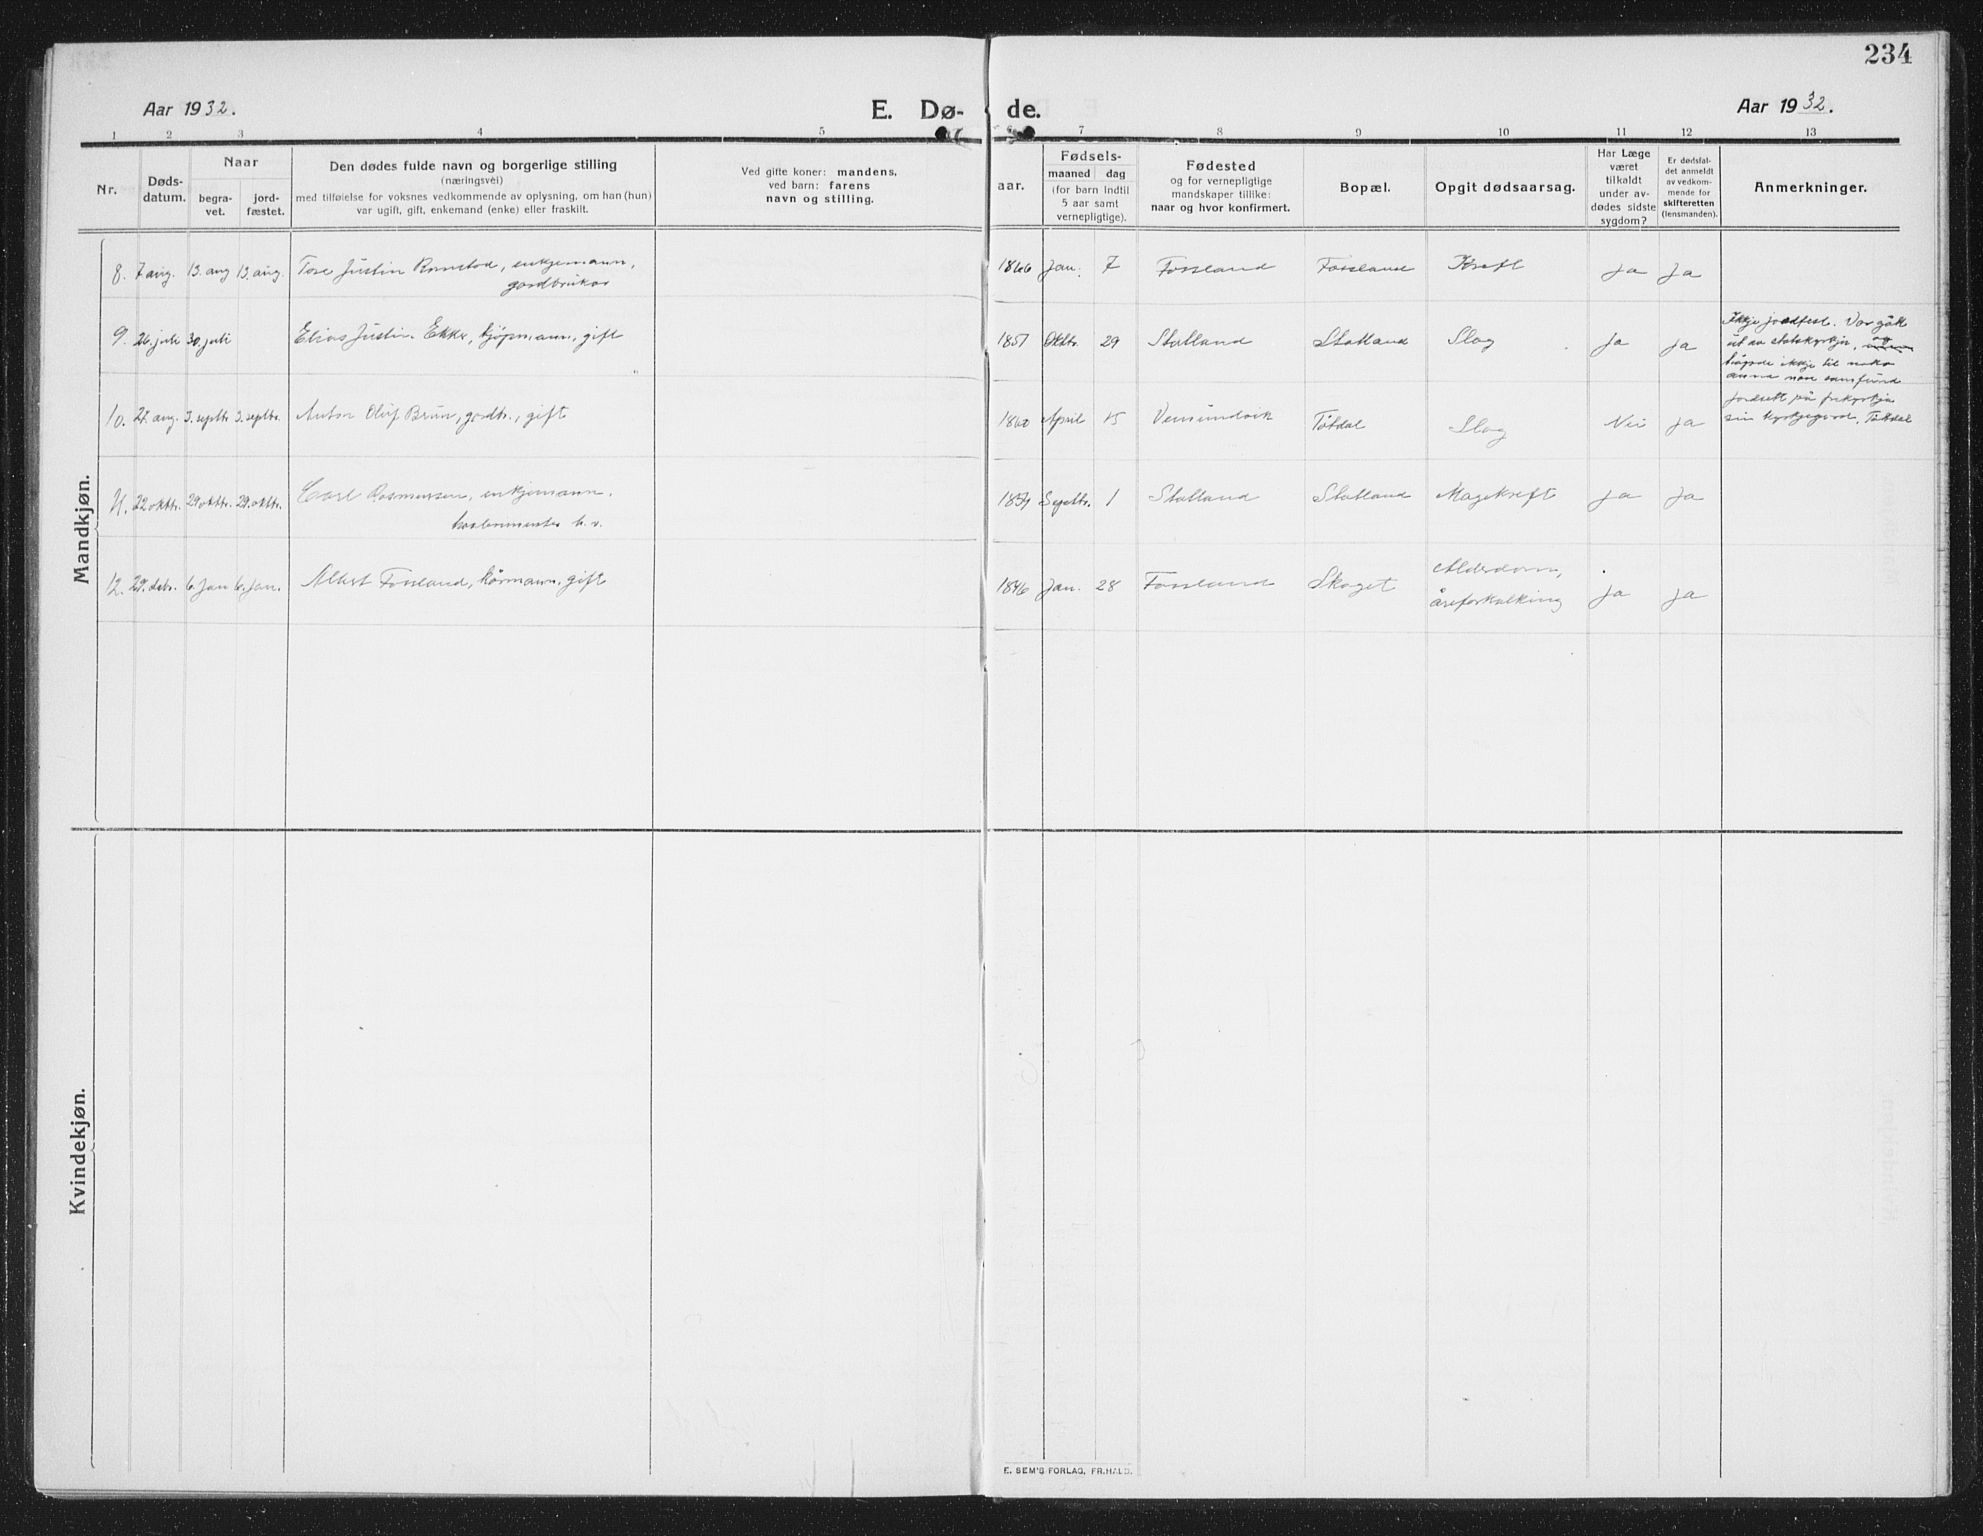 234
Aar 1932.
E. Dø-
de.
Aar 1932.
1 2 3 4 5 6 7 8 9 10 11 12 13
Nr.
Døds-
datum.
Naar
begra-
vet.
jord-
fæstet.
Den dødes fulde navn og borgerlige stilling
(næringsvei)
med tilføielse for voksnes vedkommende av oplysning, om han (hun)
var ugift, gift, enkemand (enke) eller fraskilt.
Ved gifte koner: mandens,
ved barn: farens
navn og stilling.
aar.
Fødsels-
maaned dag
(for barn indtil
5 aar samt
vernepligtige).
Fødested
og for vernepligtige
mandskaper tillike:
naar og hvor konfirmert.
Bopæl.
Opgit dødsaarsag.
Har Læge
været
tilkaldt
under av-
dødes sidste
sygdom?
Er dødsfal-
det anmeldt
av vedkom-
mende for
skifteretten
(lensmanden).
Anmerkninger.
Mandkjøn.
8. 7 aug. 13. aug 13. aug. Tore Justin Romstad, enkjemann, 1866 Jan. 7 Fossland Fossland Kreft Ja Ja
gardbrukar
9. 26. juli 30. juli Elias Justin Ekker, kjøpmann, gift 1857 Oktbr. 29 Statland Statland Slag Ja Ja
Ikkje jordfest. Var gått
ut av statskyrkja, og
høyrde ikkje til noko
anna
jordsett på frikyrkja
sin kyrkjegard, Tøtdal
10. 27. aug. 3. septbr. 3. septbr. Anton Oluf Brun, gardbr., gift 1860 April 15 Vemundvik Tøtdal Slag Nei Ja
11. 22 oktbr. 29 oktbr. 29. oktbr. Carl Rasmussen, enkjemann, 1854 Septbr. 1 Statland Statland Magekreft Ja Ja
12. 29. desbr. 6. Jan 6. Jan. Albert Fossland, kårmann, gift 1846 Jan. 28 Fossland Skaget Alderdom,
åreforkalking Ja Ja
Kvindekjøn.
E. SEM'S FORLAG, FR.HALD.